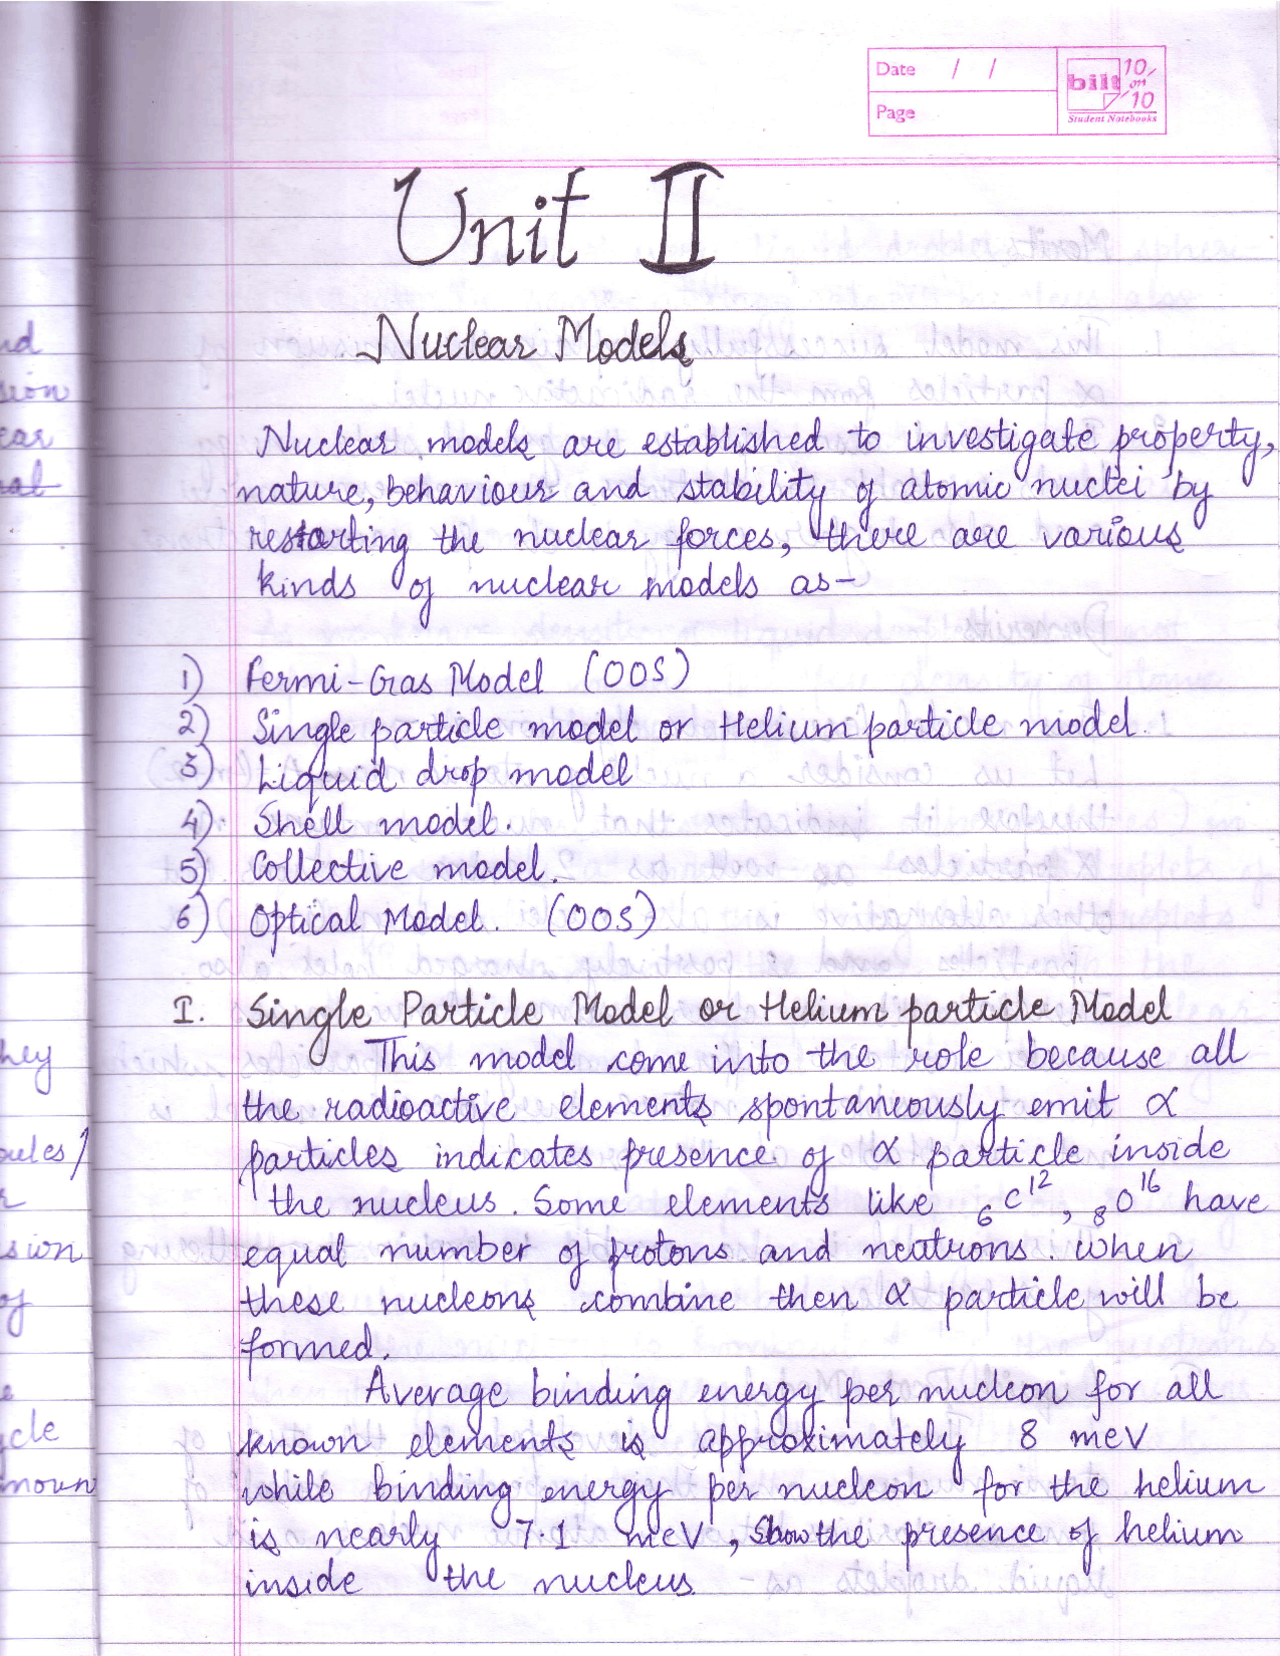 Date / /
Page
bilt 10 on 10
Student Notebooks
Unit II
Nuclear Models
Nuclear models are established to investigate property,
nature, behaviour and stability of atomic nuclei by
restarting the nuclear forces, there are various
kinds of nuclear models as-
1) Fermi-Gas Model (OOS)
2) Single particle model or Helium particle model.
3) Liquid drop model
4) Shell model.
5) Collective model.
6) Optical Model. (OOS)
I. Single Particle Model or Helium particle Model
This model come into the role because all
the radioactive elements spontaneously emit α
particles indicates presence of α particle inside
the nucleus. Some elements like ₆C¹², ₈O¹⁶ have
equal number of protons and neutrons. When
these nucleons combine then α particle will be
formed.
Average binding energy per nucleon for all
known elements is approximately 8 meV
while binding energy per nucleon for the helium
is nearly 7.1 meV, show the presence of helium
inside the nucleus